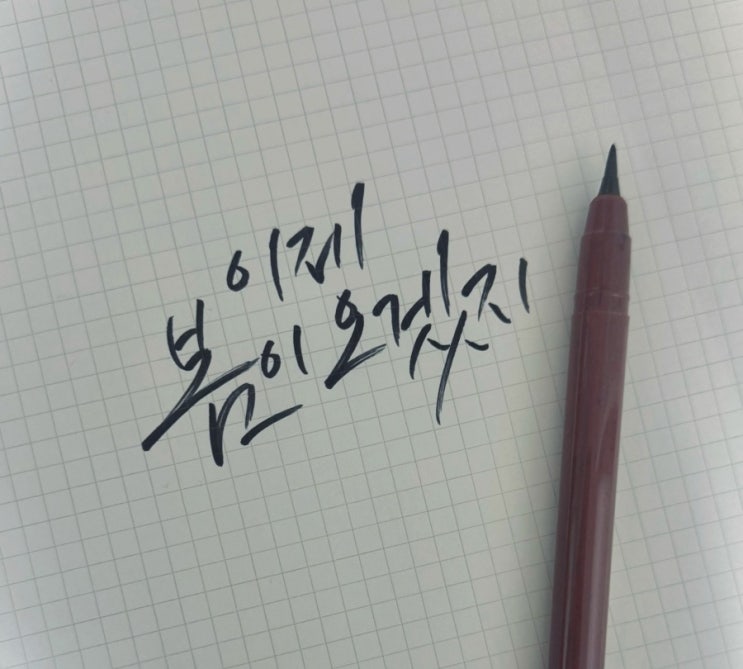 이제
봄이 오겠지